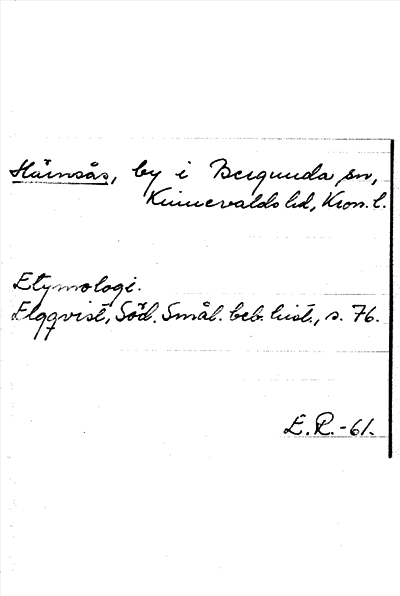 Härnsås, by i Bergunda sn,
Kinnevalds hd, Kron. l.
Etymologi.
Elqqvist, Söd. Smål. beb. hist., s. 76.
E. R. -61.